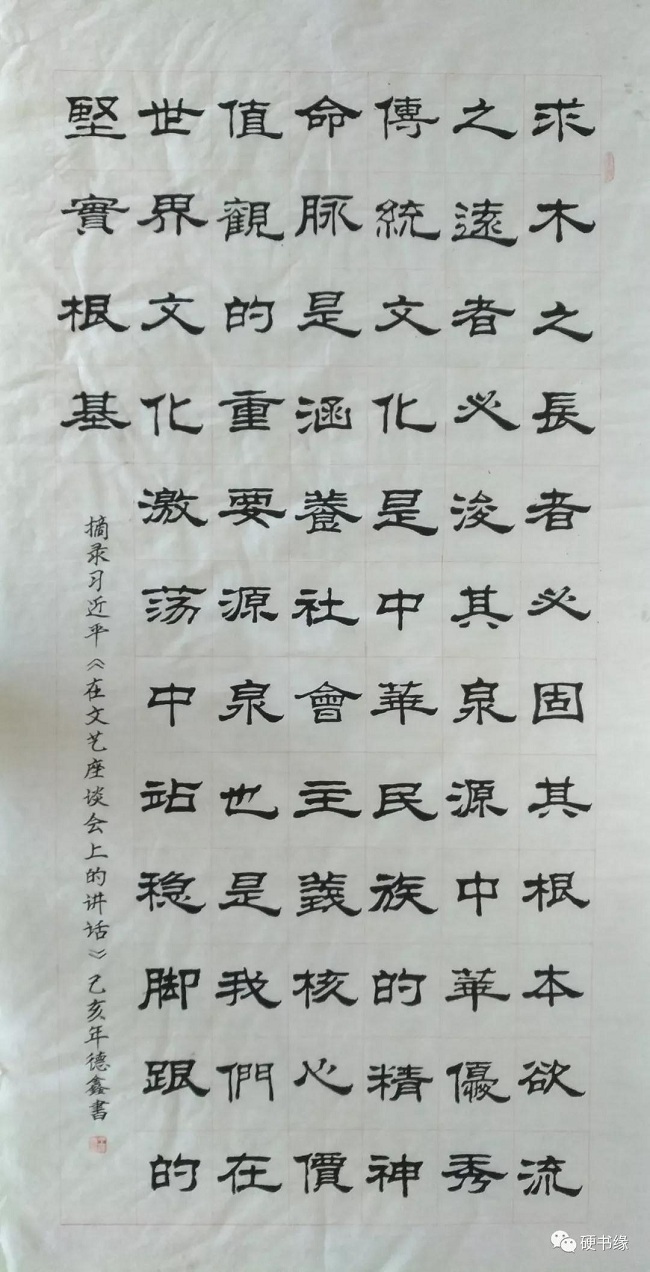 求木之長者必固其根本欲流
之遠者必浚其泉源中華優秀
傳統文化是中華民族的精神
命脉是涵養社會主義核心價
值觀的重要源泉也是我們在
世界文化激荡中站稳脚跟的
堅實根基
摘录习近平《在文艺座谈会上的讲话》己亥年德鑫書
硬书缘